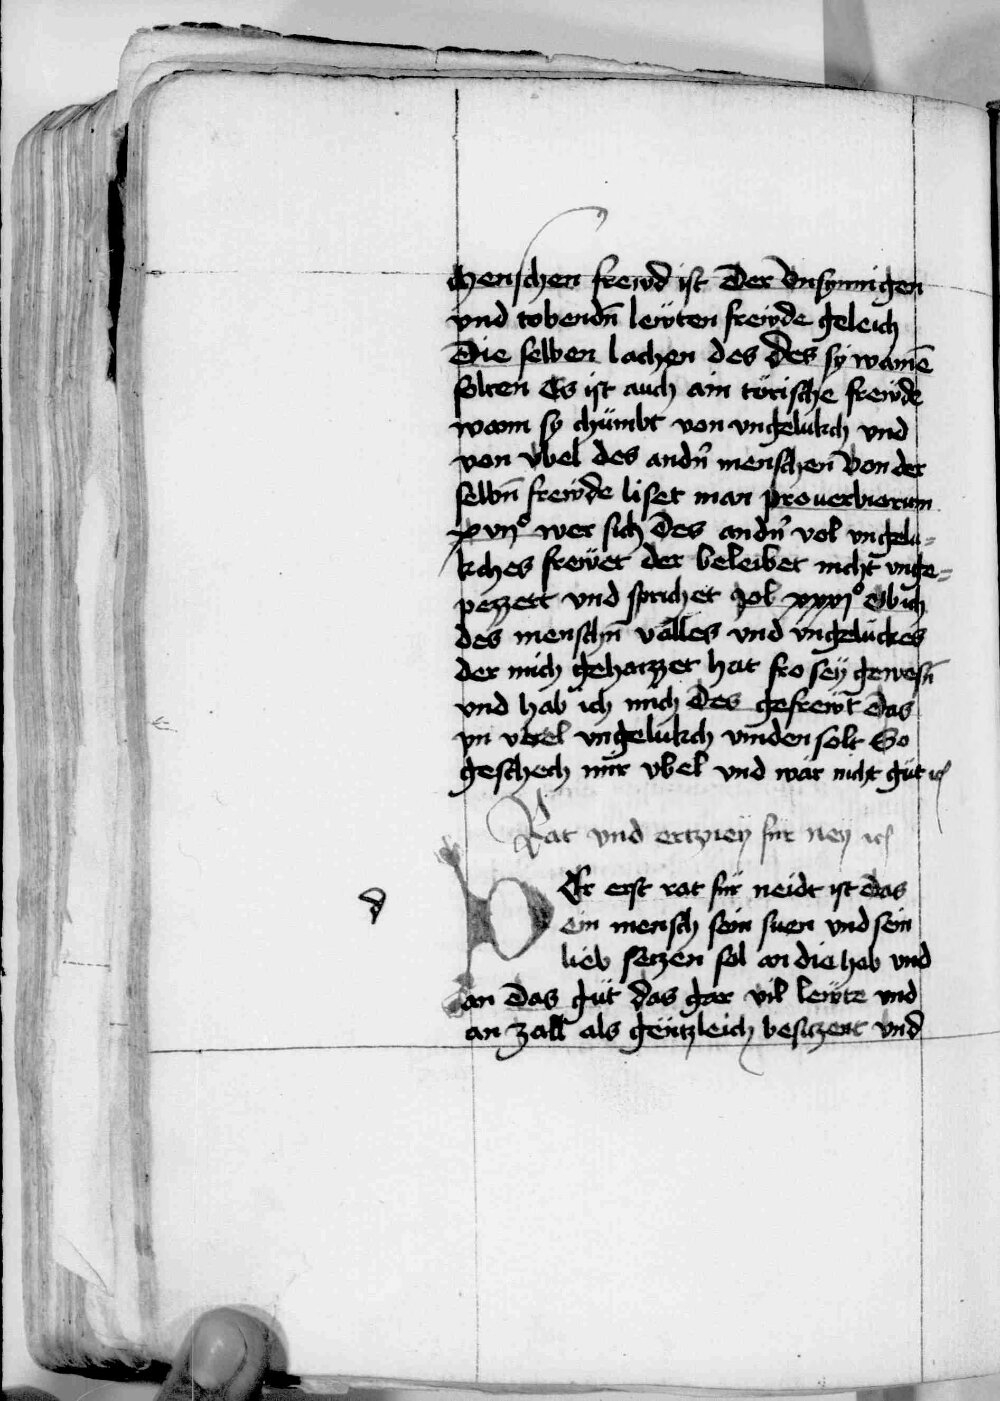 chenschen frewd ist Der Vnsynnigen
vnd tobendn̄ lewten frewde geleich
Die selben lachen des des sy wainē
solten Es ist auch ain törische frewde
wann sy chümbt von vngelukch vnd
von vbel des andn̄ menschen Von der
selbn̄ frewde liset man prouerbiorum
xvijº wer sich Des andn̄ vol vngelu=
kches frewet der beleibet nicht vnge=
pezzert vnd sprichet Job xxxjº Ob ich
des menschn̄ valles vnd vngelückes
der mich gehazzet hat fro sey gewesn̄
vnd hab ich mich Des gefrewt Das
yn vbel vngelukch vinden solt So
geschech mir vbel vnd wär nicht güt
Rat vnd ertzney für ney
d
Er erst rat für neidt ist Das
ein mensch sein suen vnd sein
lieb setzen sol an die hab vnd
an Das güt das gar vil lewte vnd
an zall als gentzleich besitzent vnd